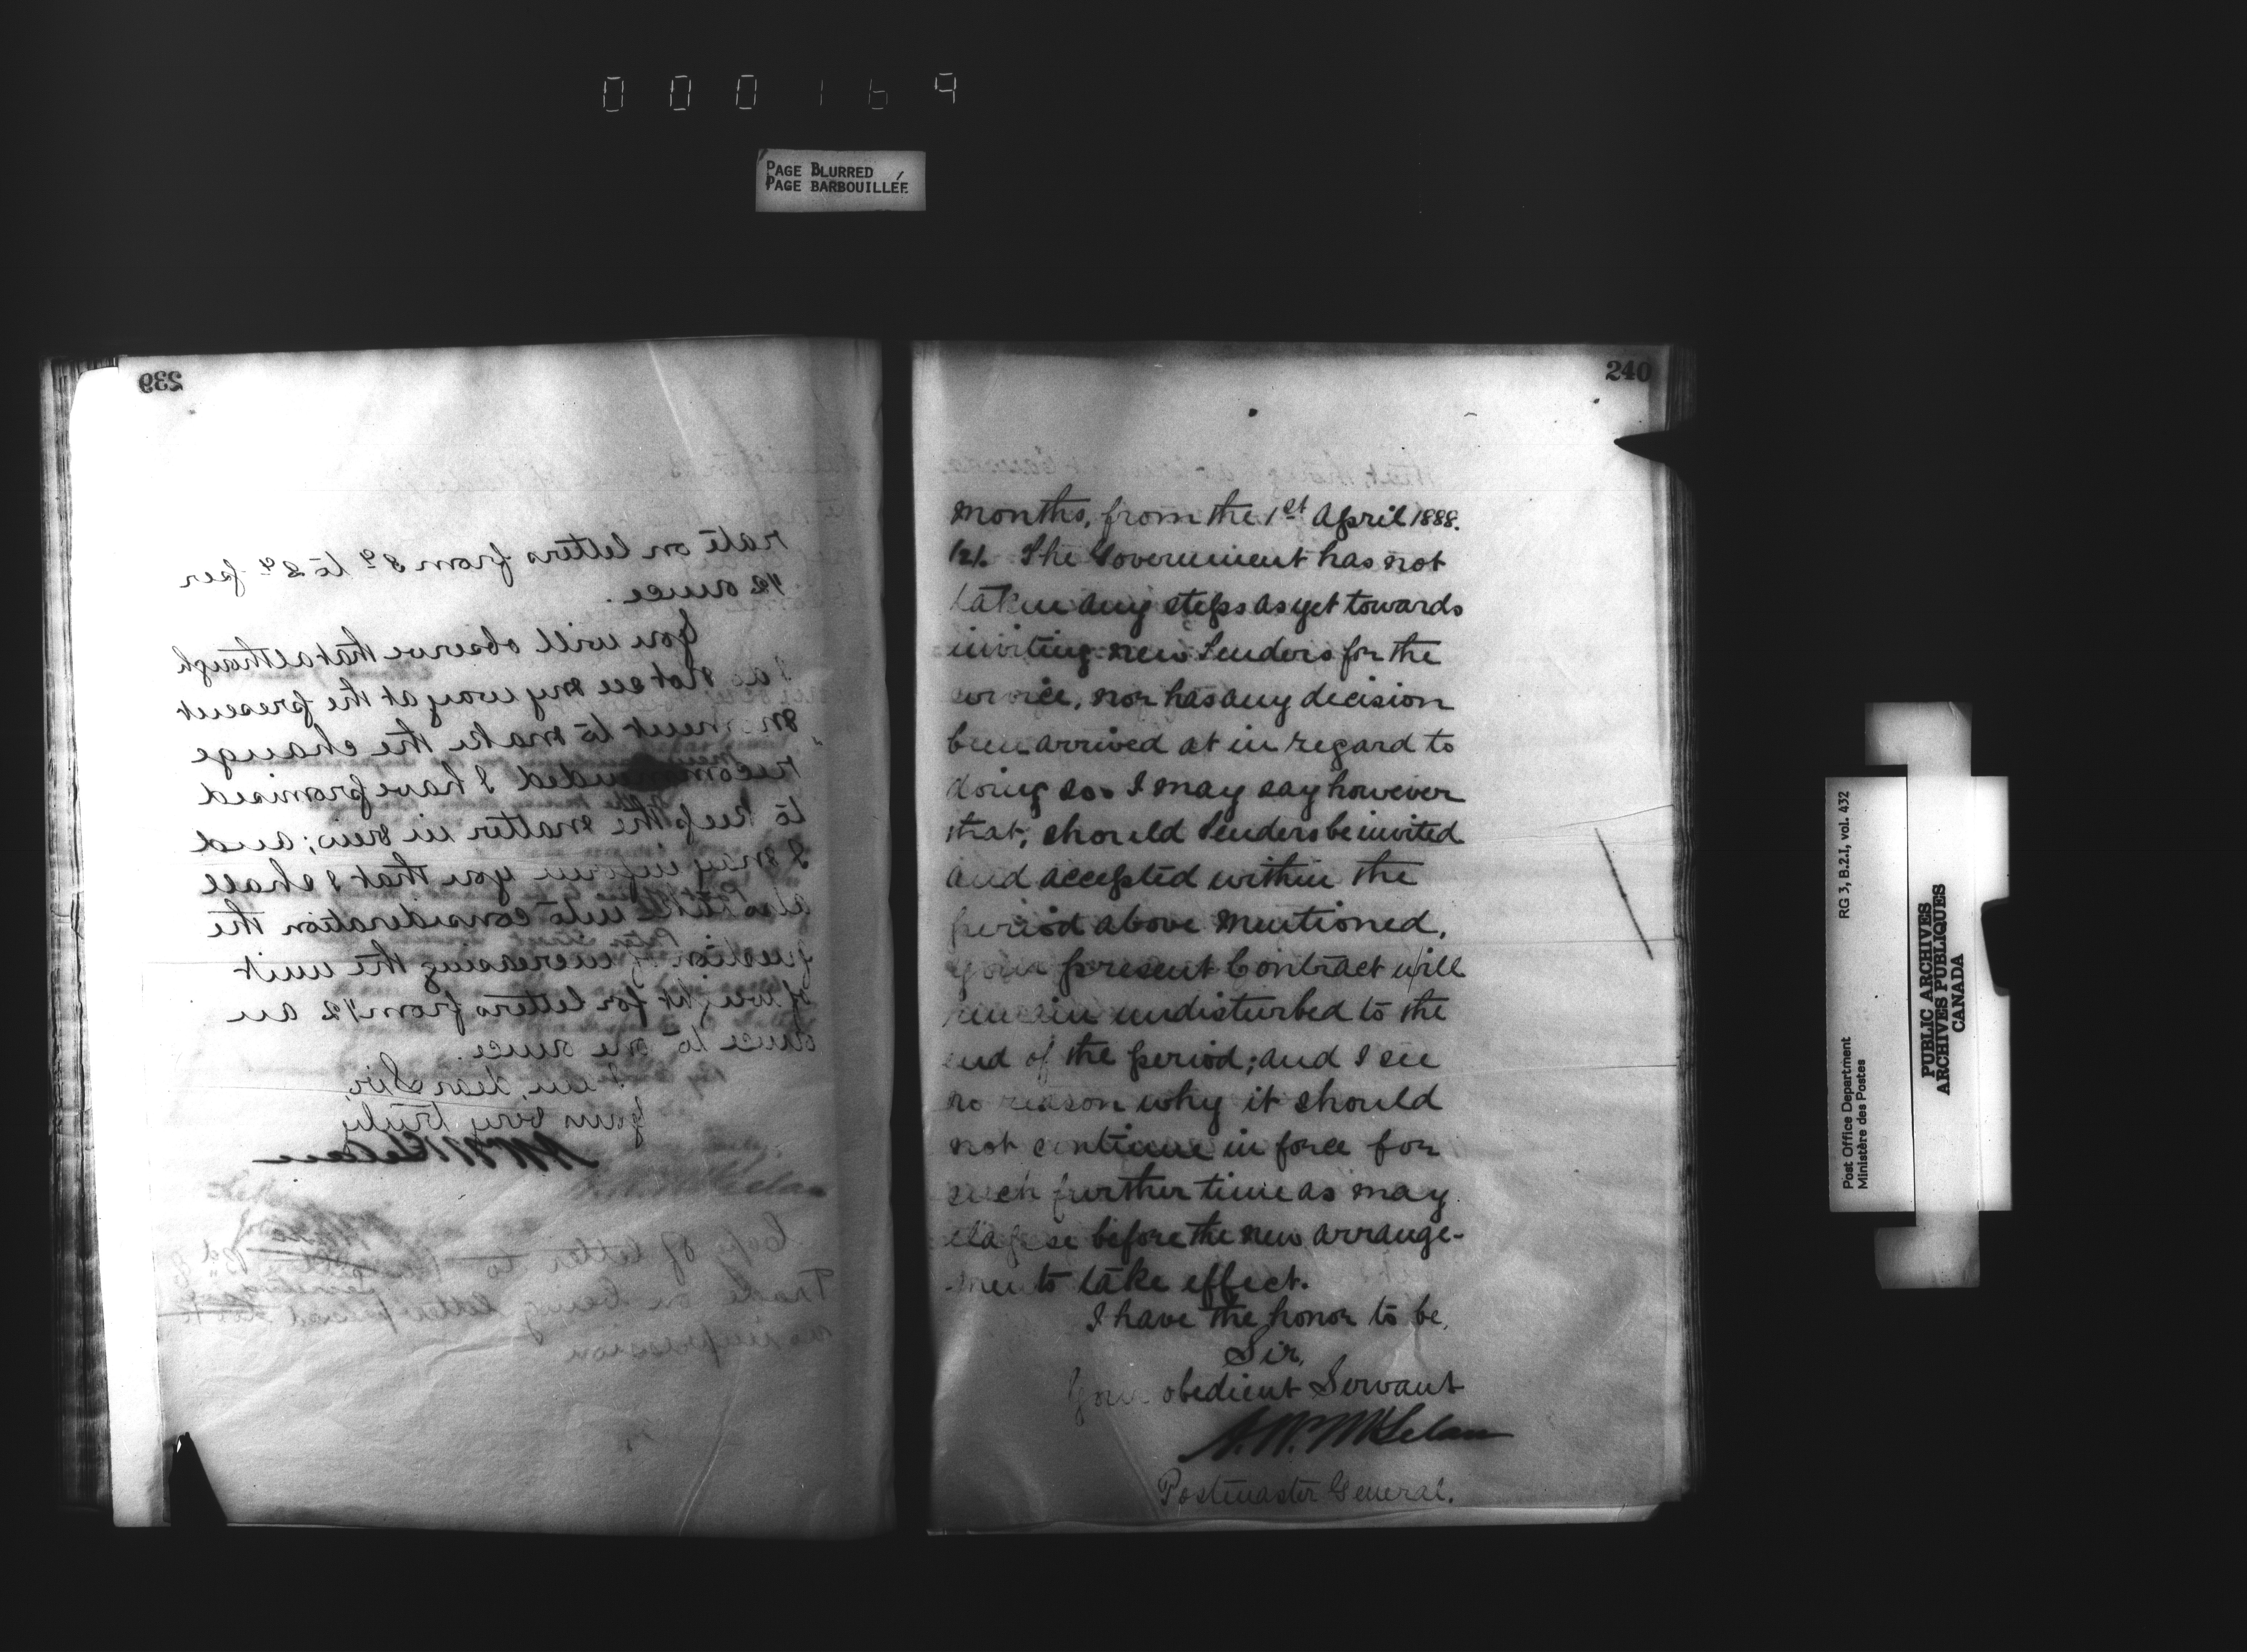 000169
PAGE BLURRED
PAGE BARBOUILLÉE
239
rate on letters from 3c to 2c per
1/2 ounce.
You will observe that although
I do not see my way at the present
moment to make the change
recommended I have promised
to keep the matter in view; and
I may inform you that I shall
also take into consideration the
question of increasing the unit
of weight for letters from 1/2 an
ounce to one ounce.
I am, dear Sir,
Yours very truly
A. W. McLelan
Copy of letter to
Trade on being letter
no impression
240
months, from the 1st April 1888.
(2). The Government has not
taken any steps as yet towards
inviting new Tenders for the
service, nor has any decision
been arrived at in regard to
doing so. I may say however
that, should Tenders be invited
and accepted within the
period above mentioned,
your present Contract will
remain undisturbed to the
end of the period; and I see
no reason why it should
not continue in force for
such further time as may
elapse before the new arrange-
-ments take effect.
I have the honor to be,
Sir,
Your obedient Servant
A. W. McLelan
Postmaster General.
Post Office Department
Ministère des Postes
RG 3, B.2.I, vol. 432
PUBLIC ARCHIVES
ARCHIVES PUBLIQUES
CANADA